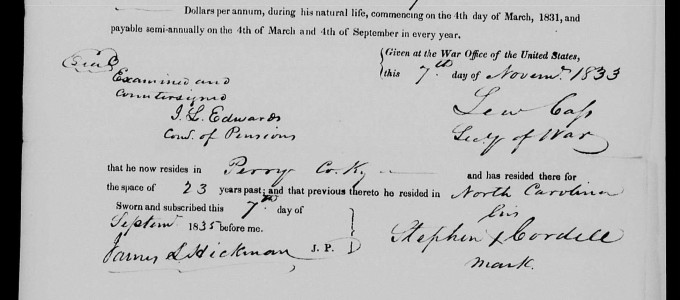 Dollars per annum, during his natural life, commencing on the 4th day of March, 1831, and
payable semi-annually on the 4th of March and 4th of September in every year.
Given at the War Office of the United States,
this 7th day of Novemr. 1833
Seal
Examined and
countersigned
J. L. Edwards
Com. of Pensions
Lew Cass
Secy of War
that he now resides in Perry Co. Ky and has resided there for
the space of 23 years past; and that previous thereto he resided in North Carolina
Sworn and subscribed this 7th day of
Septemr 1835 before me.
James L Hickman J. P.
his
Stephen X Cordell
mark.